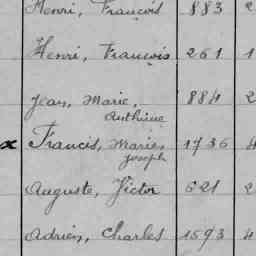 Henri, François 883 2
Henri, François 261 1
Jean, Marie, 884 2
Anthime
x Francis, Marie, 1736 4
Joseph
Auguste, Victor 621 2
Adrien, Charles 1593 4